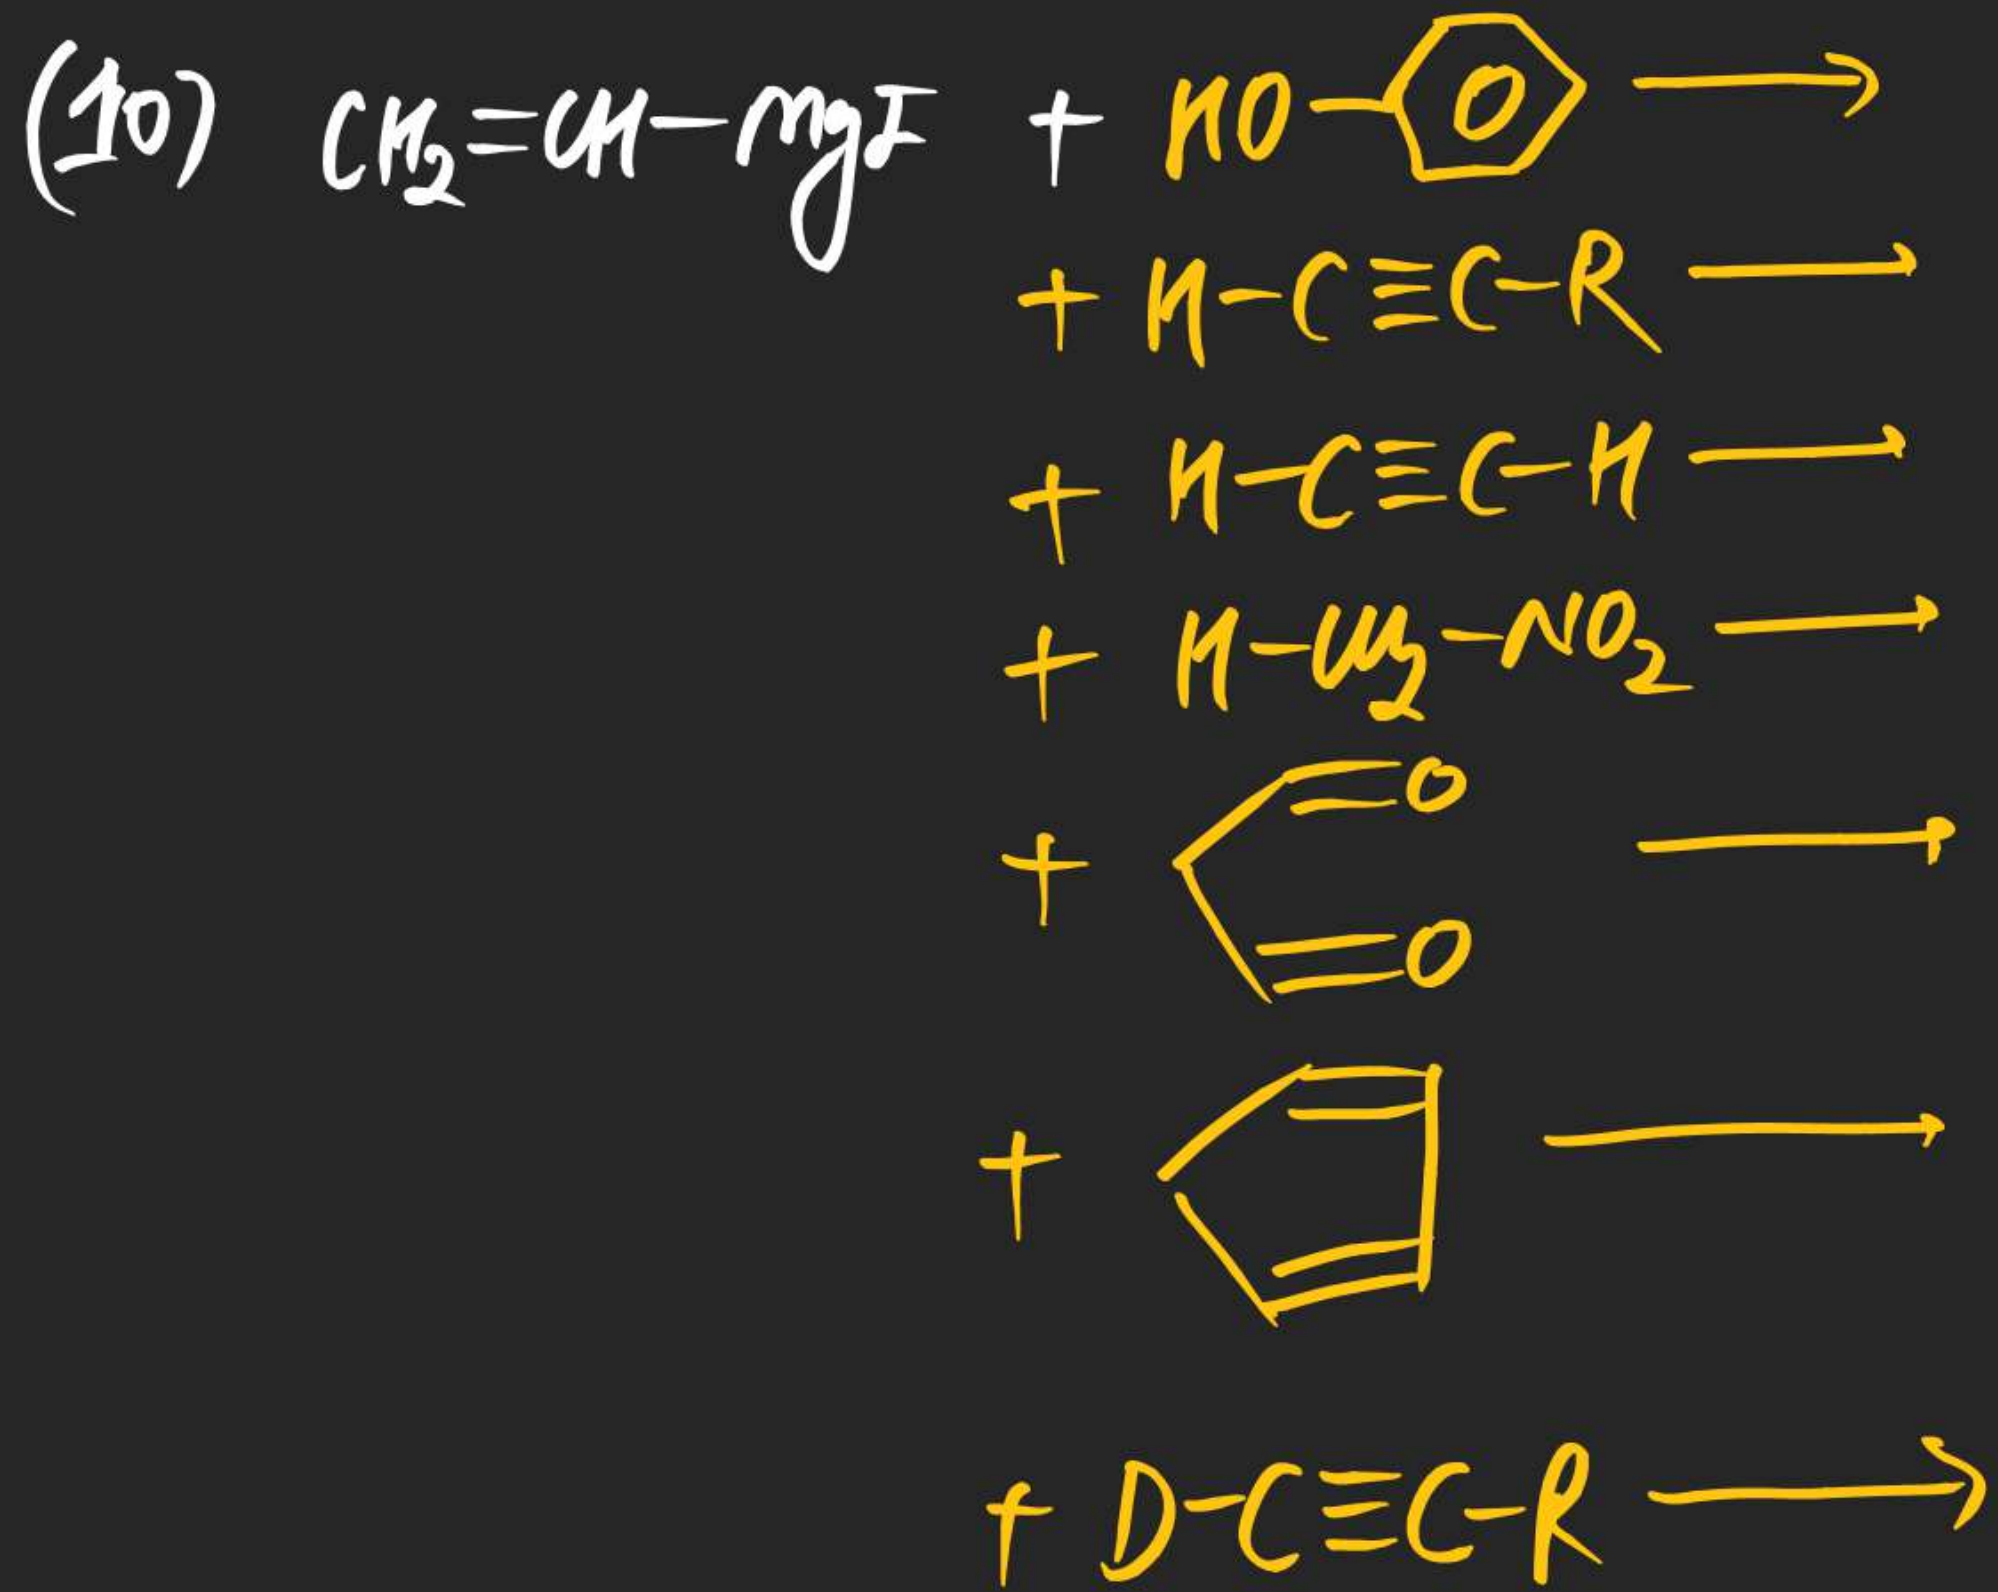 (10) CH2=CH-MgI + HO- →
+ H-C≡C-R →
+ H-C≡C-H →
+ H-CH2-NO2 →
+ =O =O →
+ →
+ D-C≡C-R →